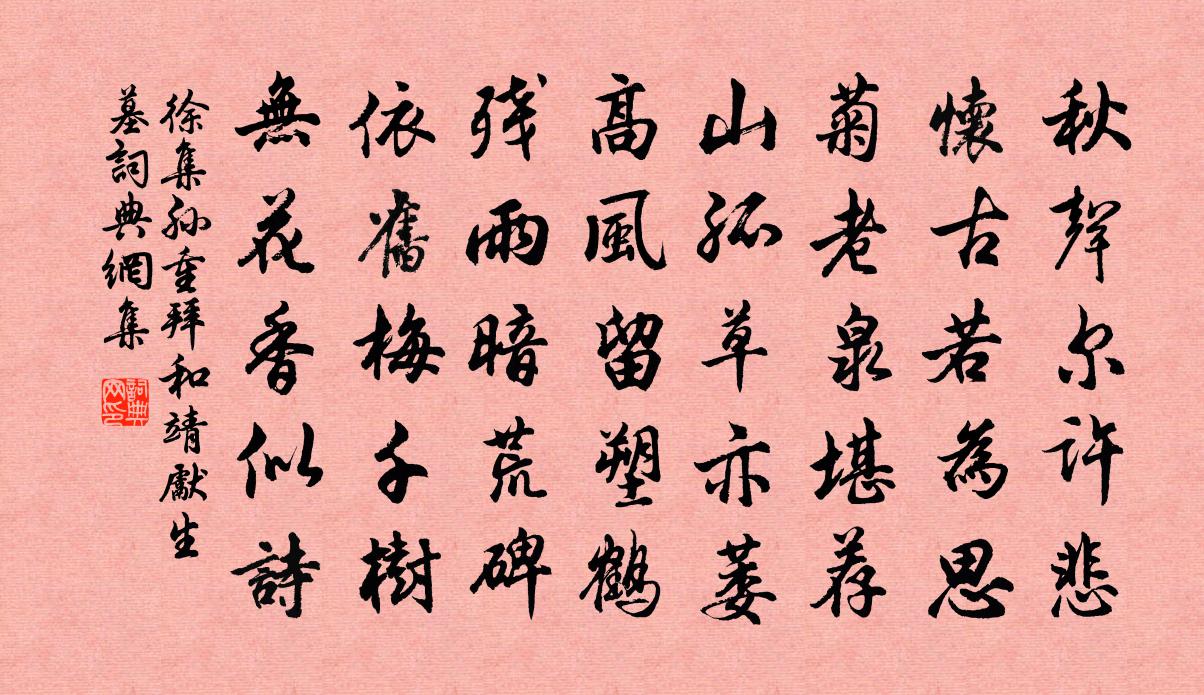 秋聲尔許悲
懷古若為思
菊老泉堪荐
山孤草亦萎
高風留塑鶴
残雨暗荒碑
依舊梅千樹
無花香似詩
徐集孫重拜和靖處士
墓詞典網集
詞典网印